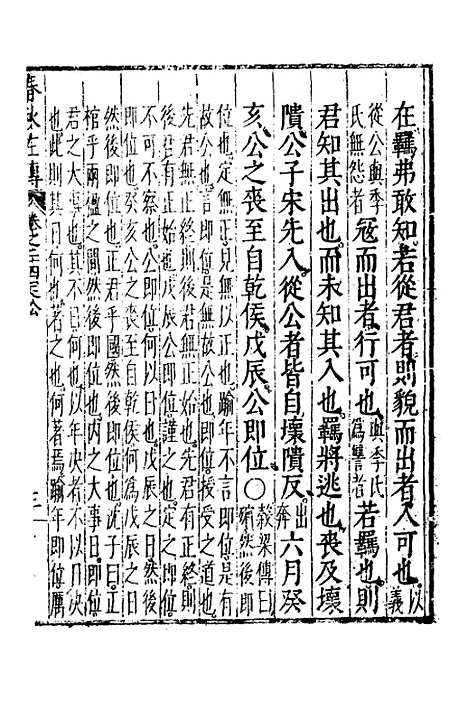 在羈弗敢知若從君者則貌而出者入可也以義
從公與季氏無怨者寇而出者行可也與季氏為讐者若羈也則
君知其出也而未知其入也羈將逃也喪及壞
隤公子宋先入從公者皆自壞隤反出奔六月癸
亥公之喪至自乾侯戊辰公即位〇穀梁傳曰殯然後即
位也定無正見無以正也踰年不言即位是有
故公也言即位是無故公也即位授受之道也
先君無正終則後君無正始也先君有正終則
後君有正始也戊辰公即位謹之也定之即位
不可不察也公即位何以日也戊辰之日然後
即位也癸亥公之喪至自乾侯何為戊辰之日
然後即位也正君乎國然後即位也沈子曰正
棺乎兩楹之間然後即位也內之大事日即位
君之大事也其不日何也以年決者不以日決
也此則其日何也著之也何著焉踰年即位厲
春秋左傳 卷之二四定公